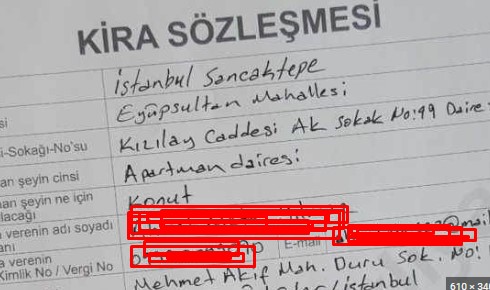 KİRA SÖZLEŞMESİ
İstanbul Sancaktepe
si Eyüpsultan Mahallesi
i-Sokağı-No'su Kızılay Caddesi Ak Sokak No:99 Daire
an şeyin cinsi Apartman dairesi
an şeyin ne için Konut
lacağı
verenin adı soyadı
anı E-mail @mail
a verenin
Kimlik No / Vergi No Mehmet Akif Mah. Duru Sok. No!
İstanbul
610 × 34